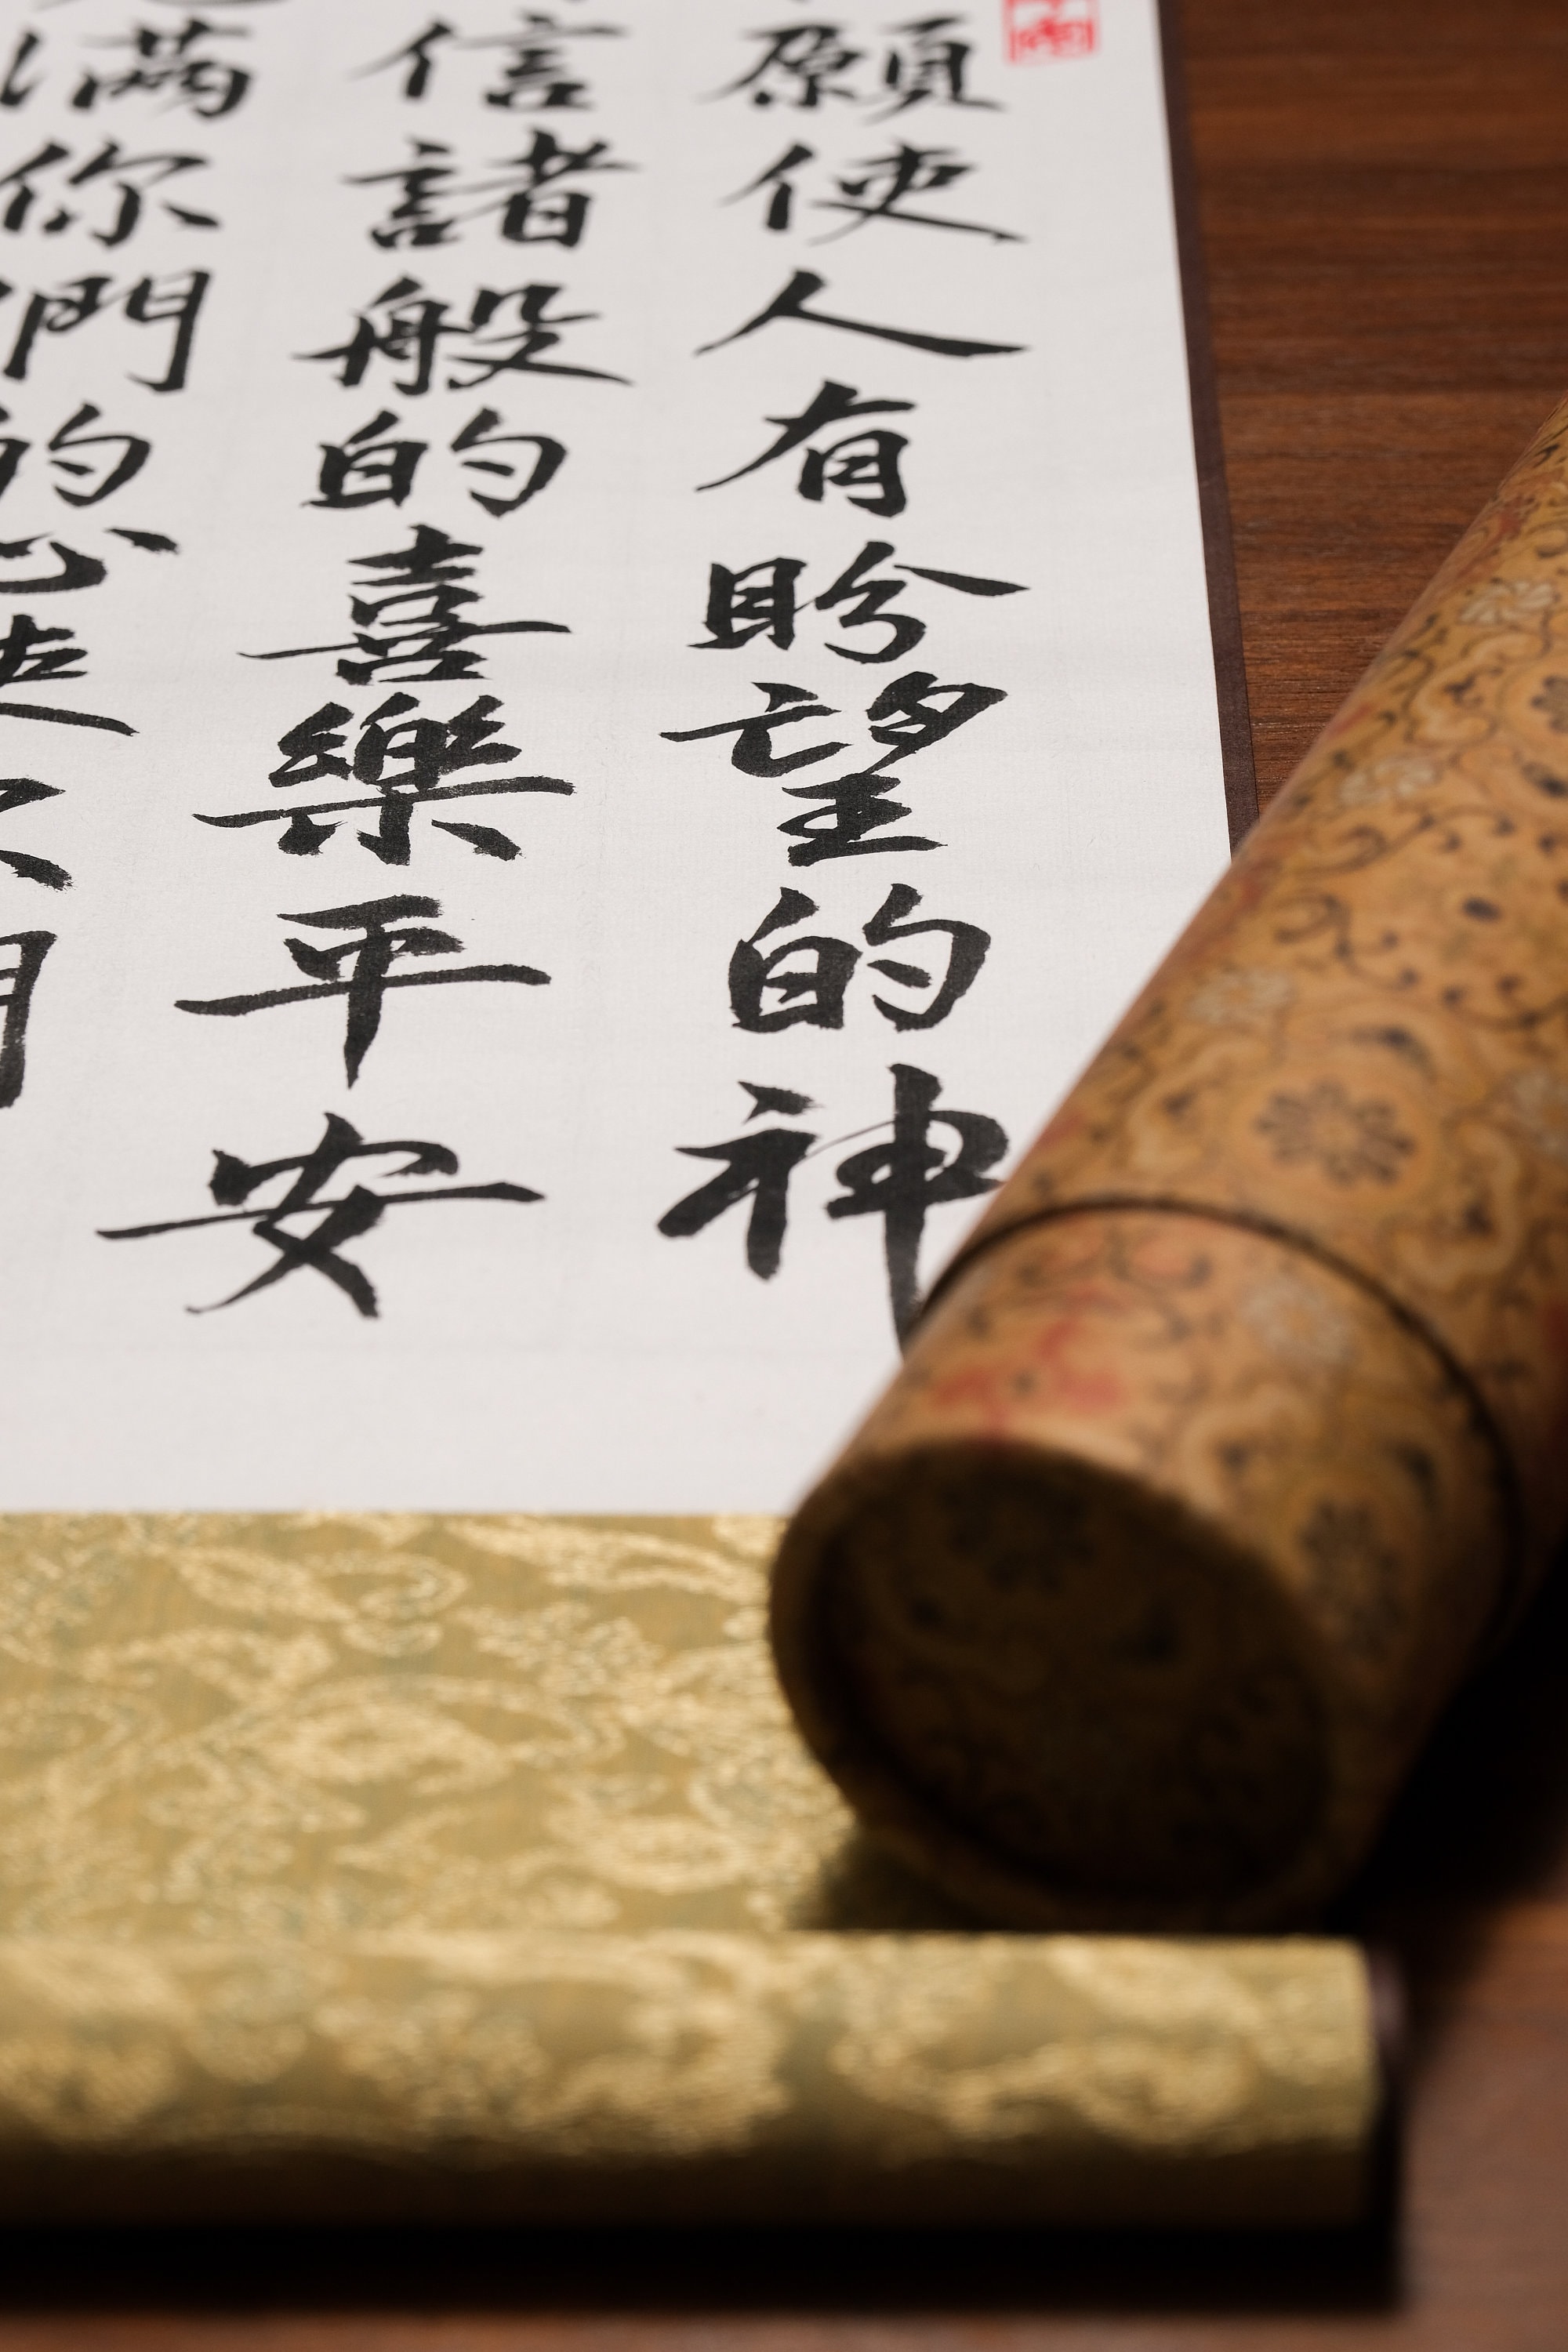 願使人有盼望的神
信諸般的喜樂平安
滿你們的心